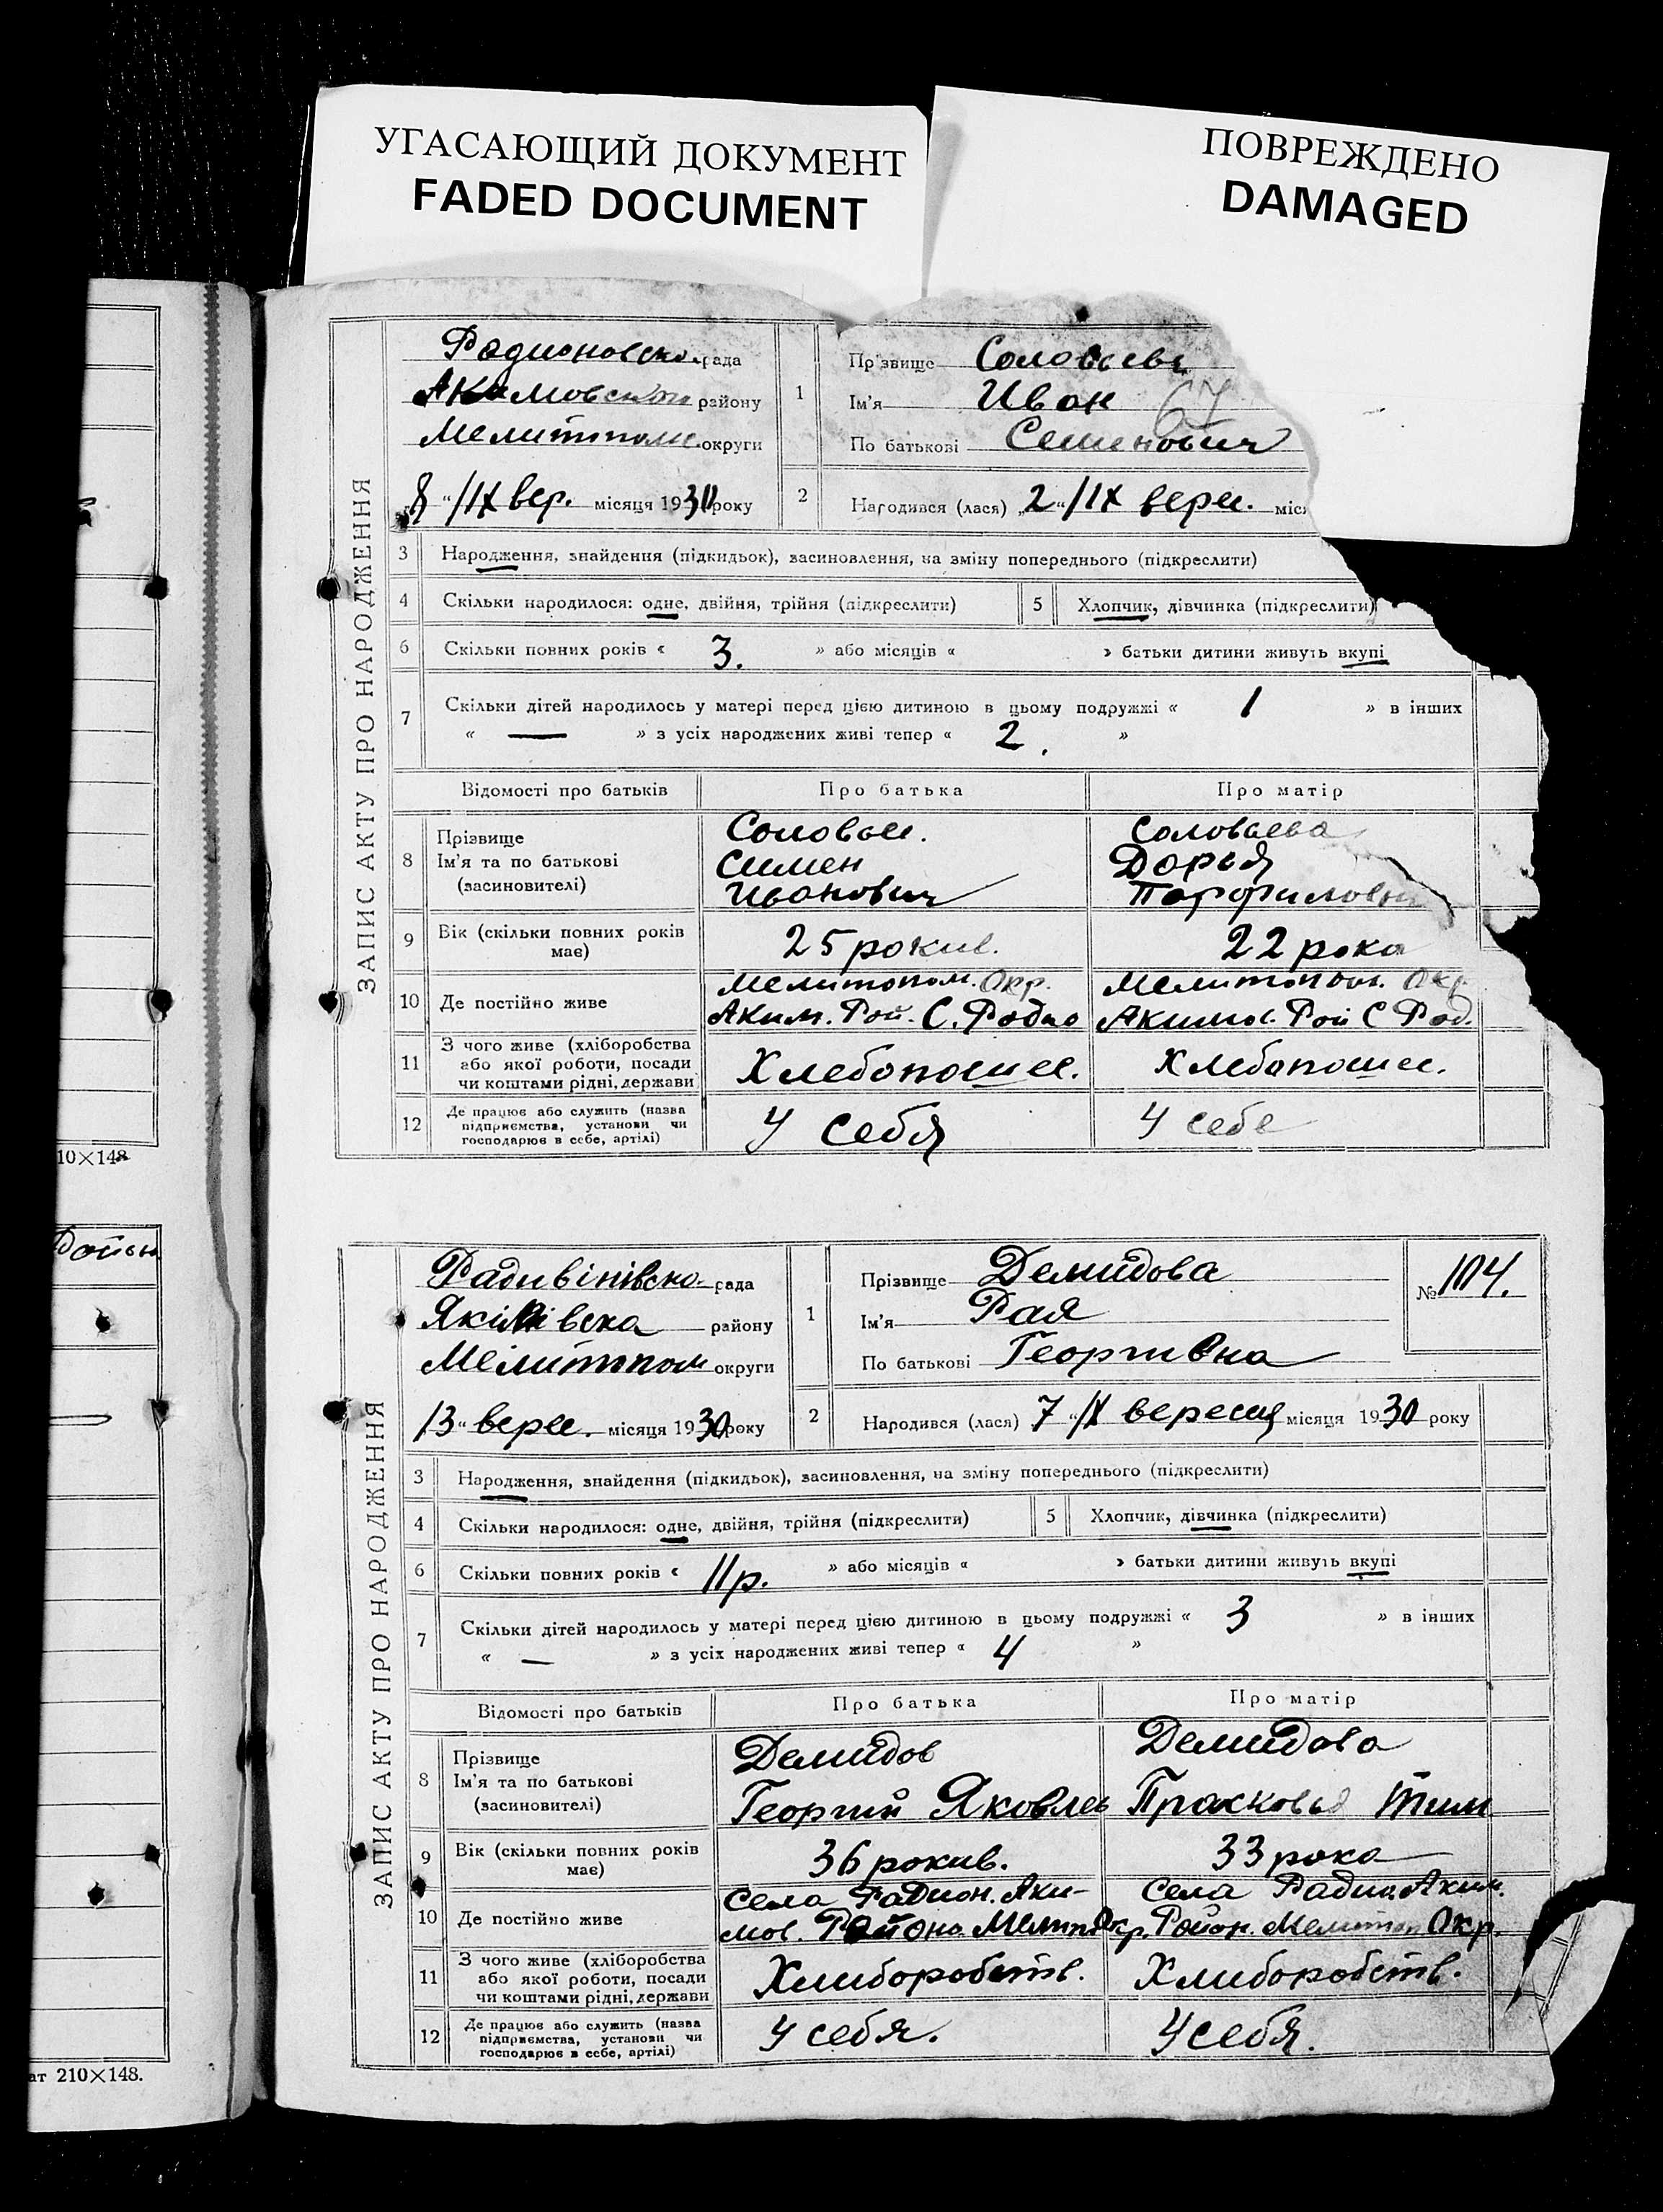 УГАСАЮЩИЙ ДОКУМЕНТ
FADED DOCUMENT
ПОВРЕЖДЕНО
DAMAGED
ЗАПИС АКТУ ПРО НАРОДЖЕННЯ
Радионовска рада
Акимовского району
Мелитополь округи
8 "/IX вер. місяця 1930 року
1
Прізвище Соловьев
Ім'я Иван 67
По батькові Семенович
2
Народився (лася) „2"/IX верес. міс
3 Народження, знайдення (підкидьок), засиновлення, на зміну попереднього (підкреслити)
4 Скільки народилося: одне, двійня, трійня (підкреслити) 5 Хлопчик, дівчинка (підкреслити)
6 Скільки повних років « 3. » або місяців « » батьки дитини живуть вкупі
7 Скільки дітей народилось у матері перед цією дитиною в цьому подружжі « 1 » в інших
« — » з усіх народжених живі тепер « 2. »
Відомості про батьків Про батька Про матір
8 Прізвище Соловьев. Соловьева
Ім'я та по батькові Симен Дорья
(засиновителі) Иванович Парфиловн
9 Вік (скільки повних років має) 25 рокив. 22 рока
10 Де постійно живе Мелитопол. Окр. Мелитопол. Окр.
Аким. Рай. С. Радио Акимов. Рай С Рад.
11 З чого живе (хліборобства
або якої роботи, посади
чи коштами рідні, держави) Хлебопашес. Хлебопашес.
12 Де працює або служить (назва
підприємства, установи чи
господарює в себе, артілі) У себя У себе
10×148
Район
ат 210×148.
ЗАПИС АКТУ ПРО НАРОДЖЕННЯ
Радивінівска рада
Якімівска району
Мелитопол округи
13 " верес. місяця 1930 року
1
Прізвище Демидова
Ім'я Рая
По батькові Георгивна
№ 104.
2
Народився (лася) 7 "/IX вересня місяця 1930 року
3 Народження, знайдення (підкидьок), засиновлення, на зміну попереднього (підкреслити)
4 Скільки народилося: одне, двійня, трійня (підкреслити) 5 Хлопчик, дівчинка (підкреслити)
6 Скільки повних років « 11 р. » або місяців « » батьки дитини живуть вкупі
7 Скільки дітей народилось у матері перед цією дитиною в цьому подружжі « 3 » в інших
« — » з усіх народжених живі тепер « 4 »
Відомості про батьків Про батька Про матір
8 Прізвище Демидов Демидова
Ім'я та по батькові
(засиновителі) Георгий Яковлев Прасковья Тим
9 Вік (скільки повних років має) 36 рокив. 33 рока
10 Де постійно живе Села Радион. Аки- Села Радио. Аким.
мов. Района Мелит Окр. Район. Мелитоп Окр.
11 З чого живе (хліборобства
або якої роботи, посади
чи коштами рідні, держави Хлиборобств. Хлиборобств.
12 Де працює або служить (назва
підприємства, установи чи
господарює в себе, артілі) У себя. У себя.